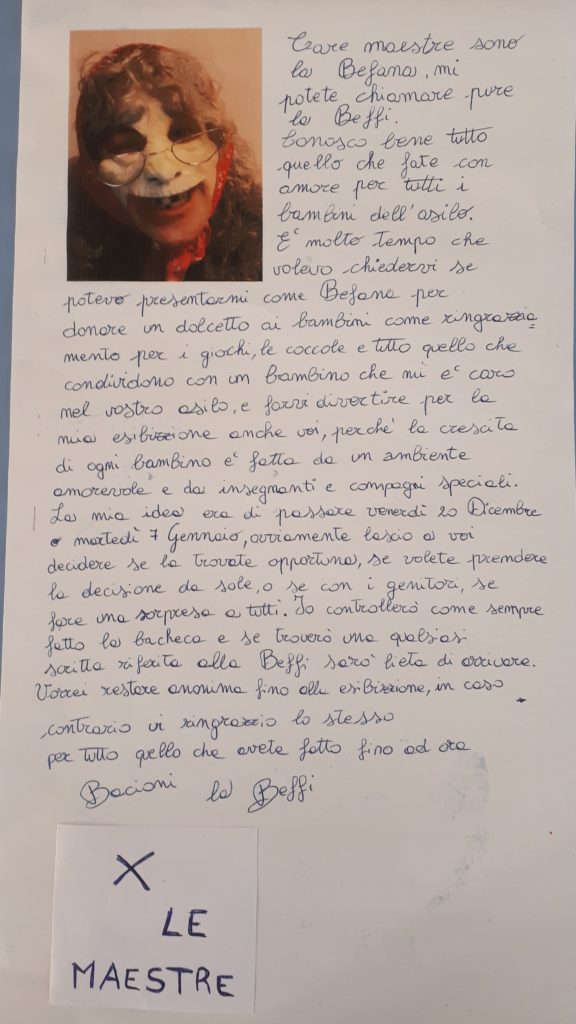 Care maestre sono
la Befana, mi
potete chiamare pure
la Beffi.
Conosco bene tutto
quello che fate con
amore per tutti i
bambini dell'asilo.
E' molto tempo che
volevo chiedervi se
potevo presentarmi come Befana per
donare un dolcetto ai bambini come ringrazzia=
mento per i giochi, le coccole e tutto quello che
condividono con un bambino che mi e' caro
nel vostro asilo, e farvi divertire per la
mia esibizzione anche voi, perche' la crescita
di ogni bambino e' fatta da un ambiente
amorevole e da insegnanti e compagni speciali.
La mia idea era di passare venerdì 20 Dicembre
o martedì 7 Gennaio, ovviamente lascio a voi
decidere se la trovate opportuna, se volete prendere
la decisione da sole, o se con i genitori, se
fare una sorpresa a tutti. Io controllerò come sempre
fatto la bacheca e se troverò una qualsiasi
scritta riferita alla Beffi sarò lieta di arrivare.
Vorrei restare anonima fino alla esibizzione, in caso
contrario vi ringrazzio lo stesso
per tutto quello che avete fatto fino ad ora
Bacioni la Beffi
X
LE
MAESTRE